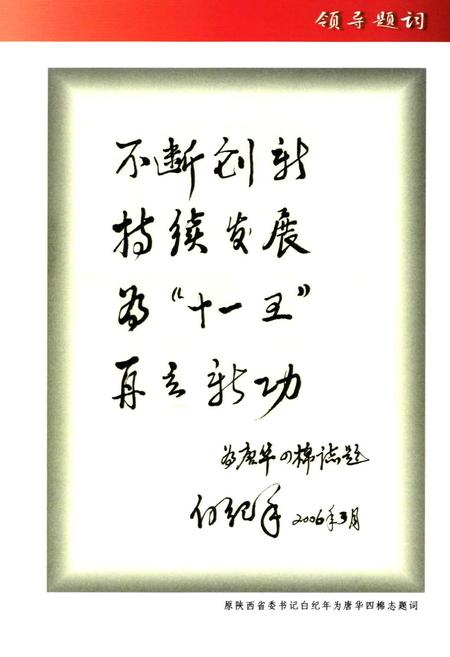 领导题词
不断创新
持续发展
为“十一五”
再立新功
为唐华四棉志题
白纪年 2006年3月
原陕西省委书记白纪年为唐华四棉志题词